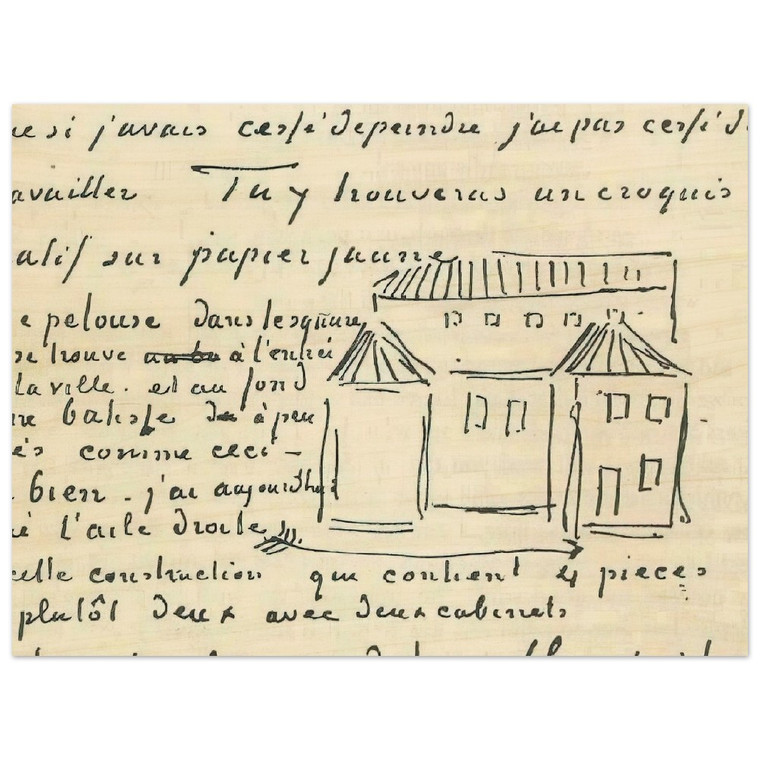 si j'avais cessé de peindre j'ai pas cessé de
availler Tu y trouveras un croquis
atif sur papier jaune
e pelouse dans le square
se trouve à l'entrée
la ville. et au fond
batisse à peu
ès comme ceci –
bien. j'ai aujourdhui
l'aile droite
cette construction qui contient 4 pieces
plutôt deux avec deux cabinets